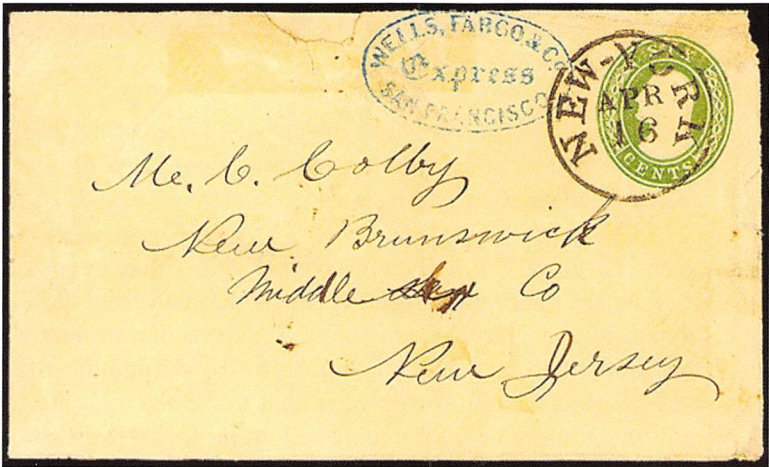 WELLS, FARGO, & Co
Express
SAN FRANCISCO
NEW-YORK
APR
16
CENTS
Mr. C. Colby
New Brunswick
Middlesex Co
New Jersey